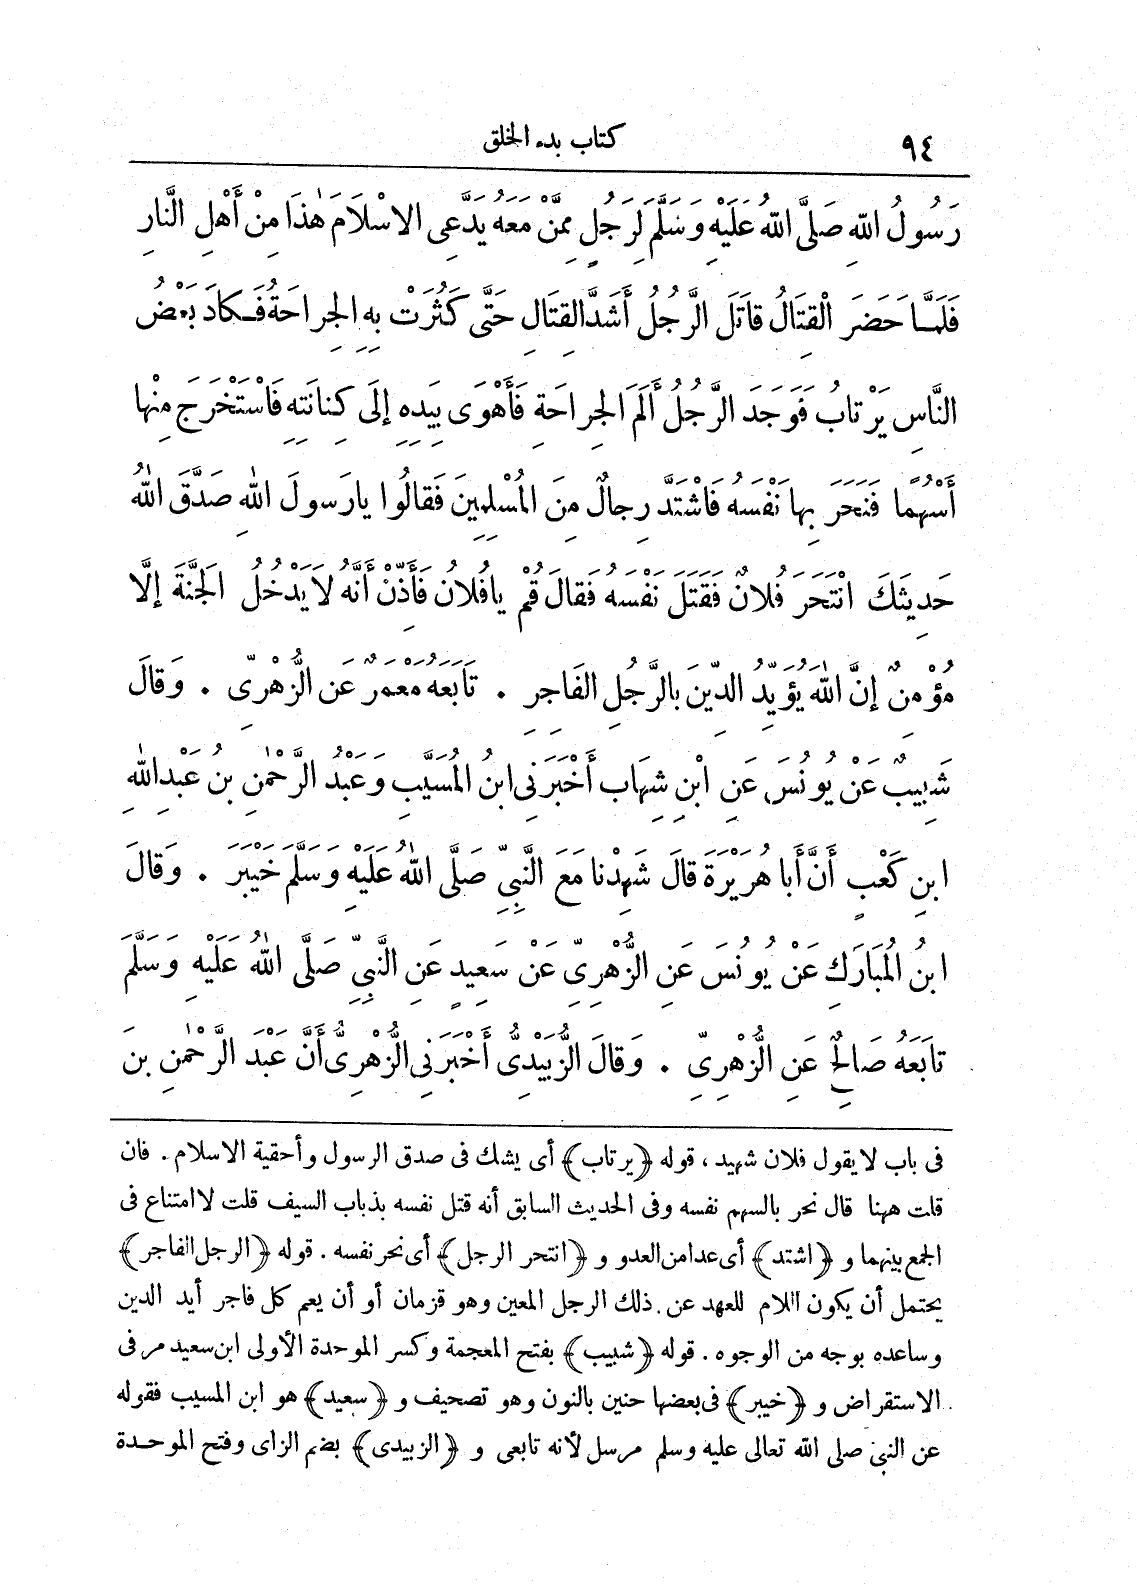 ٩٤ كتاب بدء الخلق
رَسُولُ اللهِ صَلَّى اللهُ عَلَيْهِ وَسَلَّمَ لِرَجُلٍ مِمَّنْ مَعَهُ يَدَّعِى الاِسْلَامَ هٰذَا مِنْ أَهْلِ النَّارِ
فَلَمَّا حَضَرَ الْقِتَالُ قَاتَلَ الرَّجُلُ أَشَدَّ القِتَالِ حَتَّى كَثُرَتْ بِهِ الجِرَاحَةُ فَكَادَ بَعْضُ
النَّاسِ يَرْتَابُ فَوَجَدَ الرَّجُلُ أَلَمَ الجِرَاحَةِ فَأَهْوَى بِيَدِهِ إِلَى كِنَانَتِهِ فَاسْتَخْرَجَ مِنْهَا
أَسْهُمًا فَنَحَرَ بِهَا نَفْسَهُ فَاشْتَدَّ رِجَالٌ مِنَ المُسْلِمِينَ فَقَالُوا يَارَسُولَ اللهِ صَدَّقَ اللهُ
حَدِيثَكَ انْتَحَرَ فُلَانٌ فَقَتَلَ نَفْسَهُ فَقَالَ قُمْ يَافُلَانُ فَأَذِّنْ أَنَّهُ لَا يَدْخُلُ الجَنَّةَ إِلَّا
مُؤْمِنٌ إِنَّ اللهَ يُؤَيِّدُ الدِّينَ بِالرَّجُلِ الفَاجِرِ . تَابَعَهُ مَعْمَرٌ عَنِ الزُّهْرِىِّ . وَقَالَ
شَبِيبٌ عَنْ يُونُسَ عَنِ ابْنِ شِهَابٍ أَخْبَرَنِى ابنُ المُسَيَّبِ وَعَبْدُ الرَّحْمٰنِ بنُ عَبْدِ اللهِ
ابنِ كَعْبٍ أَنَّ أَبَا هُرَيْرَةَ قَالَ شَهِدْنَا مَعَ النَّبِىِّ صَلَّى اللهُ عَلَيْهِ وَسَلَّمَ خَيْبَرَ . وَقَالَ
ابنُ المُبَارَكِ عَنْ يُونُسَ عَنِ الزُّهْرِىِّ عَنْ سَعِيدٍ عَنِ النَّبِىِّ صَلَّى اللهُ عَلَيْهِ وَسَلَّمَ
تَابَعَهُ صَالِحٌ عَنِ الزُّهْرِىِّ . وَقَالَ الزُّبَيْدِىُّ أَخْبَرَنِى الزُّهْرِىُّ أَنَّ عَبْدَ الرَّحْمٰنِ بنَ
فى باب لا يقول فلان شهيد ، قوله ﴿يرتاب﴾ أى يشك فى صدق الرسول وأحقية الاسلام . فان
قلت ههنا قال نحر بالسهم نفسه وفى الحديث السابق أنه قتل نفسه بذباب السيف قلت لا امتناع فى
الجمع بينهما و ﴿اشتد﴾ أى عدا من العدو و ﴿انتحر الرجل﴾ أى نحر نفسه . قوله ﴿الرجل الفاجر﴾
يحتمل أن يكون اللام للعهد عن ذلك الرجل المعين وهو قزمان أو أن يعم كل فاجر أيد الدين
وساعده بوجه من الوجوه . قوله ﴿شبيب﴾ بفتح المعجمة وكسر الموحدة الأولى ابن سعيد مر فى
الاستقراض و ﴿خيبر﴾ فى بعضها حنين بالنون وهو تصحيف و ﴿سعيد﴾ هو ابن المسيب فقوله
عن النبى صلى الله تعالى عليه وسلم مرسل لأنه تابعى و ﴿الزبيدى﴾ بضم الزاى وفتح الموحدة